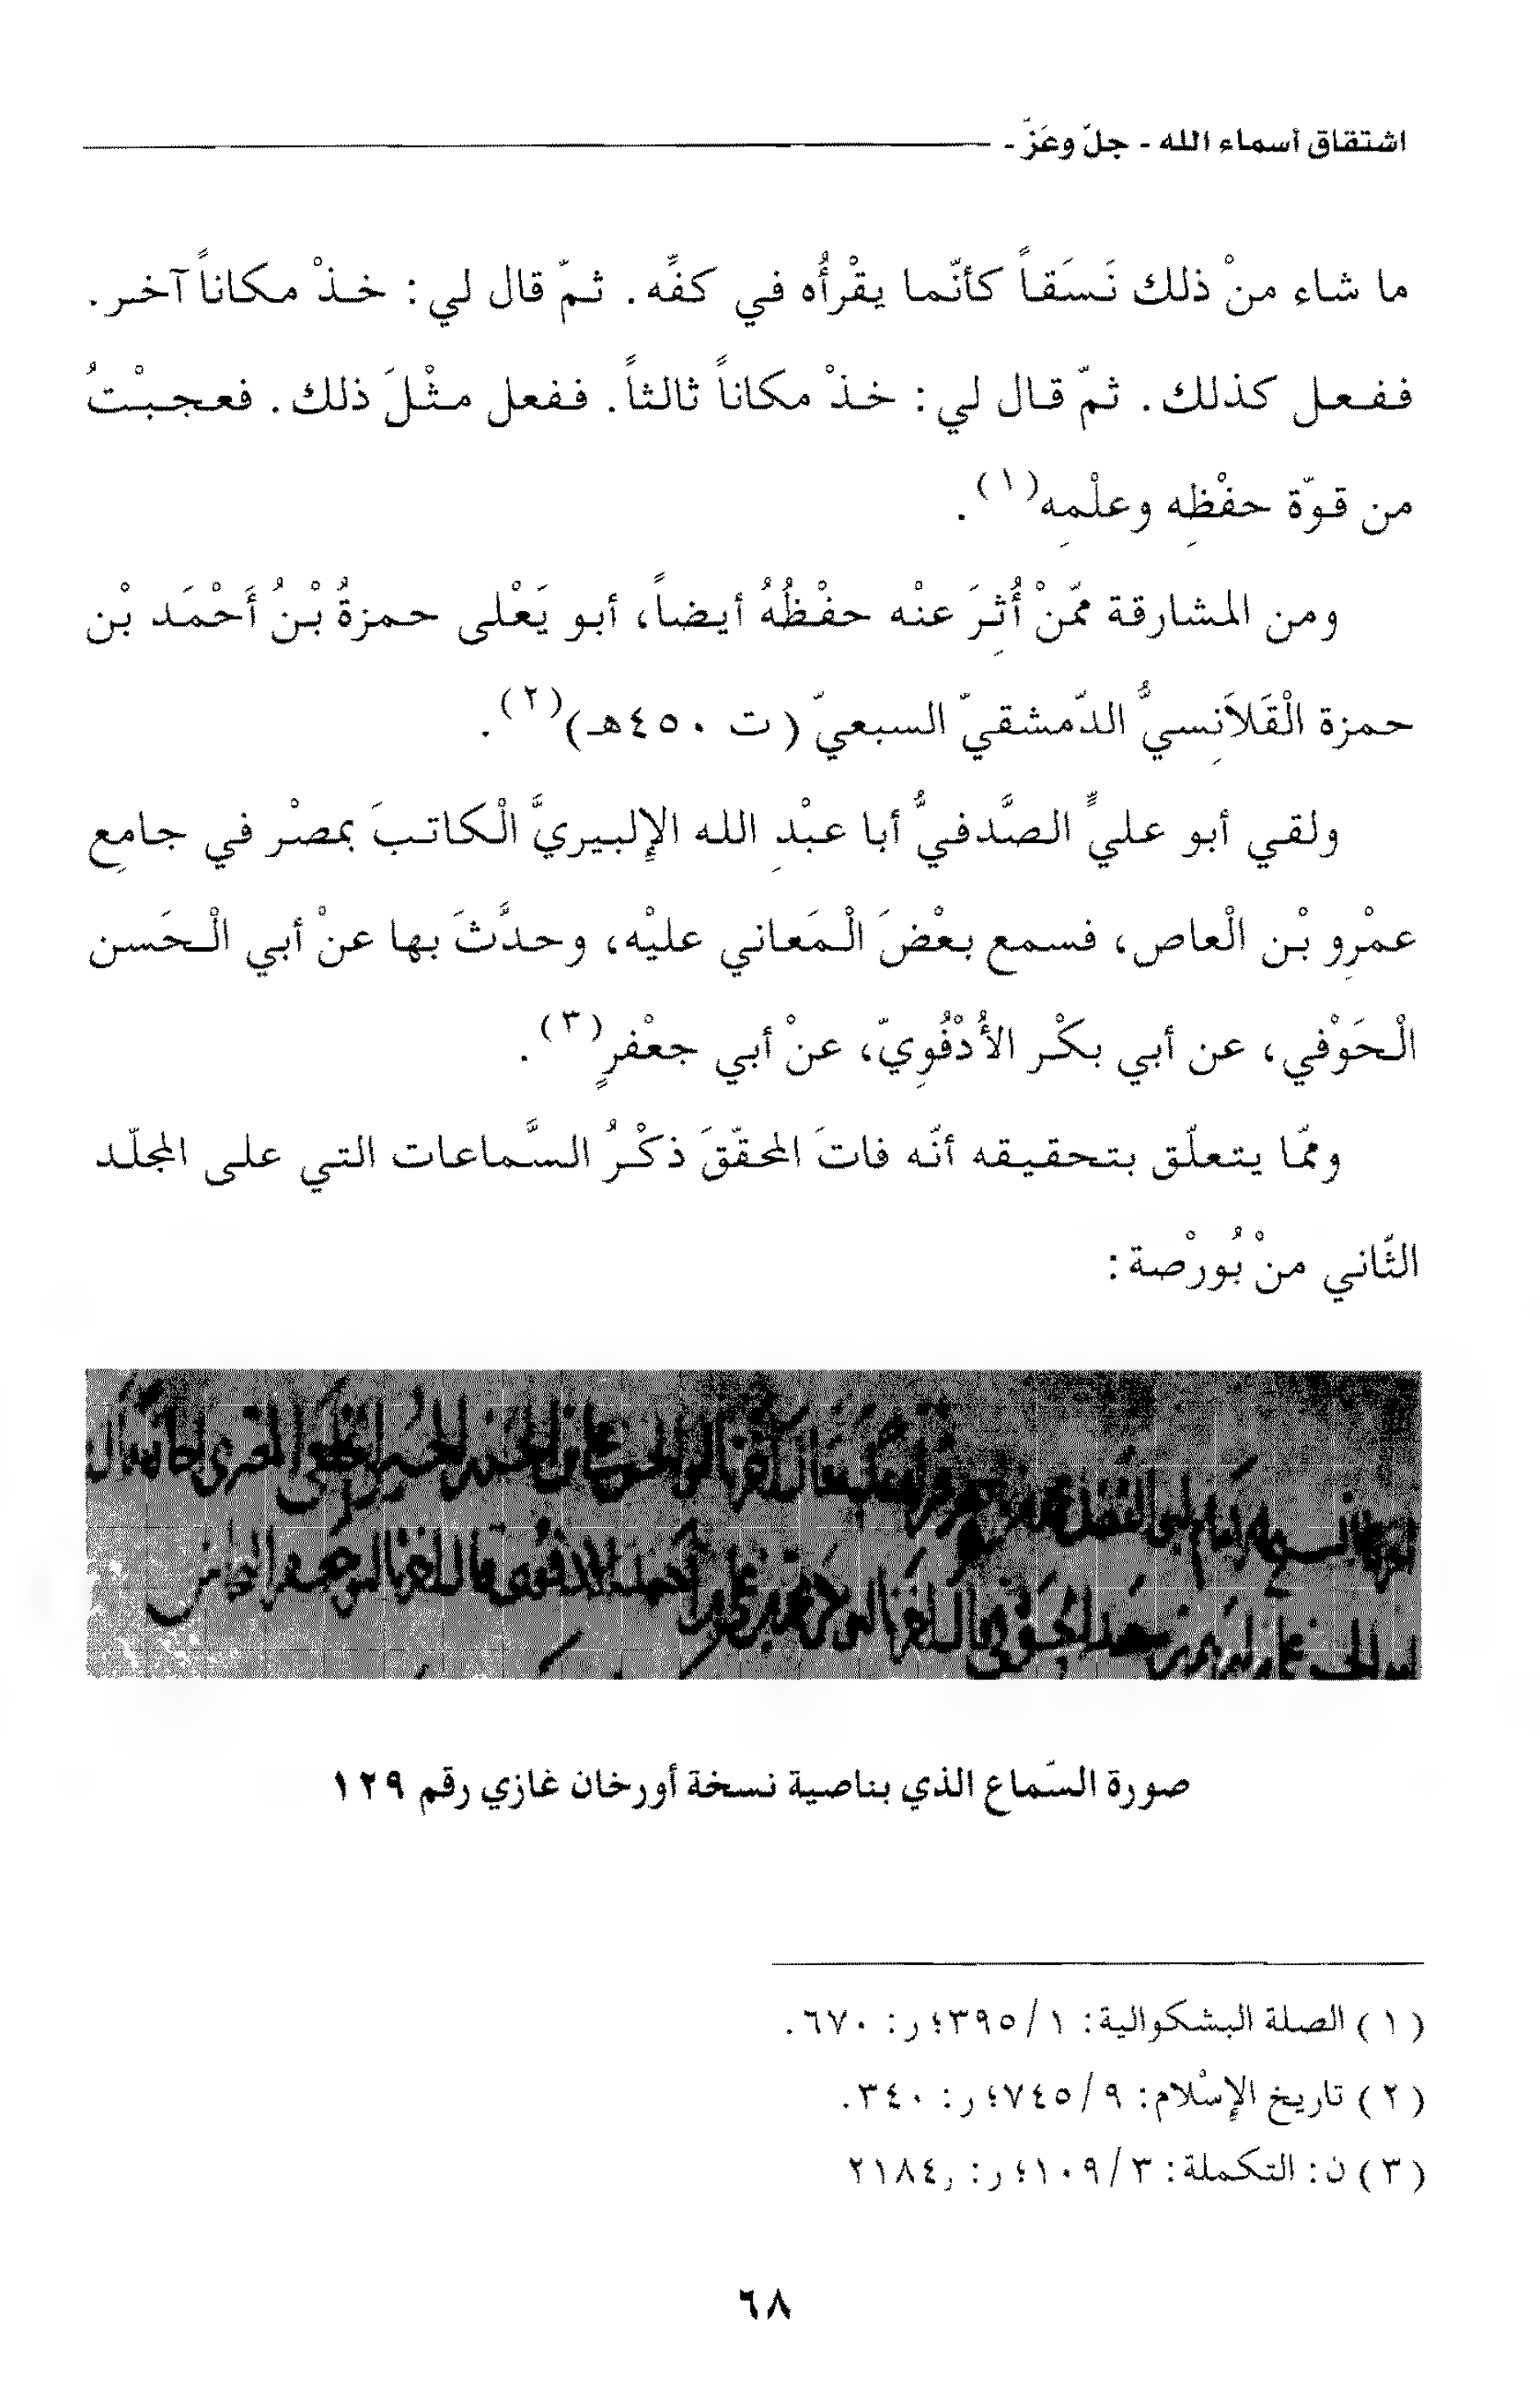 اشتقاق أسماء الله - جلّ وعَزّ -
ما شاء منْ ذلك نَسَقاً كأنّما يقْرأُه في كفِّه. ثمّ قال لي: خذْ مكاناً آخر.
ففعل كذلك. ثمّ قال لي: خذْ مكاناً ثالثاً. ففعل مثْلَ ذلك. فعجبْتُ
من قوّة حفْظِه وعلْمِه(١).
ومن المشارقة ممّنْ أُثِرَ عنْه حفْظُهُ أيضاً، أبو يَعْلى حمزةُ بْنُ أَحْمَد بْن
حمزة الْقَلاَنِسيُّ الدّمشقيّ السبعيّ (ت ٤٥٠هـ)(٢).
ولقي أبو عليٍّ الصَّدفيُّ أبا عبْدِ الله الإلبيريَّ الْكاتبَ بمصْر في جامِع
عمْرِو بْن الْعاص، فسمع بعْضَ الْمَعاني عليْه، وحدَّثَ بها عنْ أبي الْحَسن
الْحَوْفي، عن أبي بكْر الأُدْفُوِيّ، عنْ أبي جعْفرٍ(٣).
وممّا يتعلّق بتحقيقه أنّه فاتَ المحقّقَ ذكْرُ السَّماعات التي على المجلّد
الثّاني منْ بُورْصة:
صورة السّماع الذي بناصية نسخة أورخان غازي رقم ١٢٩
(١) الصلة البشكوالية: ١/ ٣٩٥؛ ر: ٦٧٠.
(٢) تاريخ الإسْلام: ٩/ ٧٤٥؛ ر: ٣٤٠.
(٣) ن: التكملة: ٣/ ١٠٩؛ ر: ,٢١٨٤
٦٨